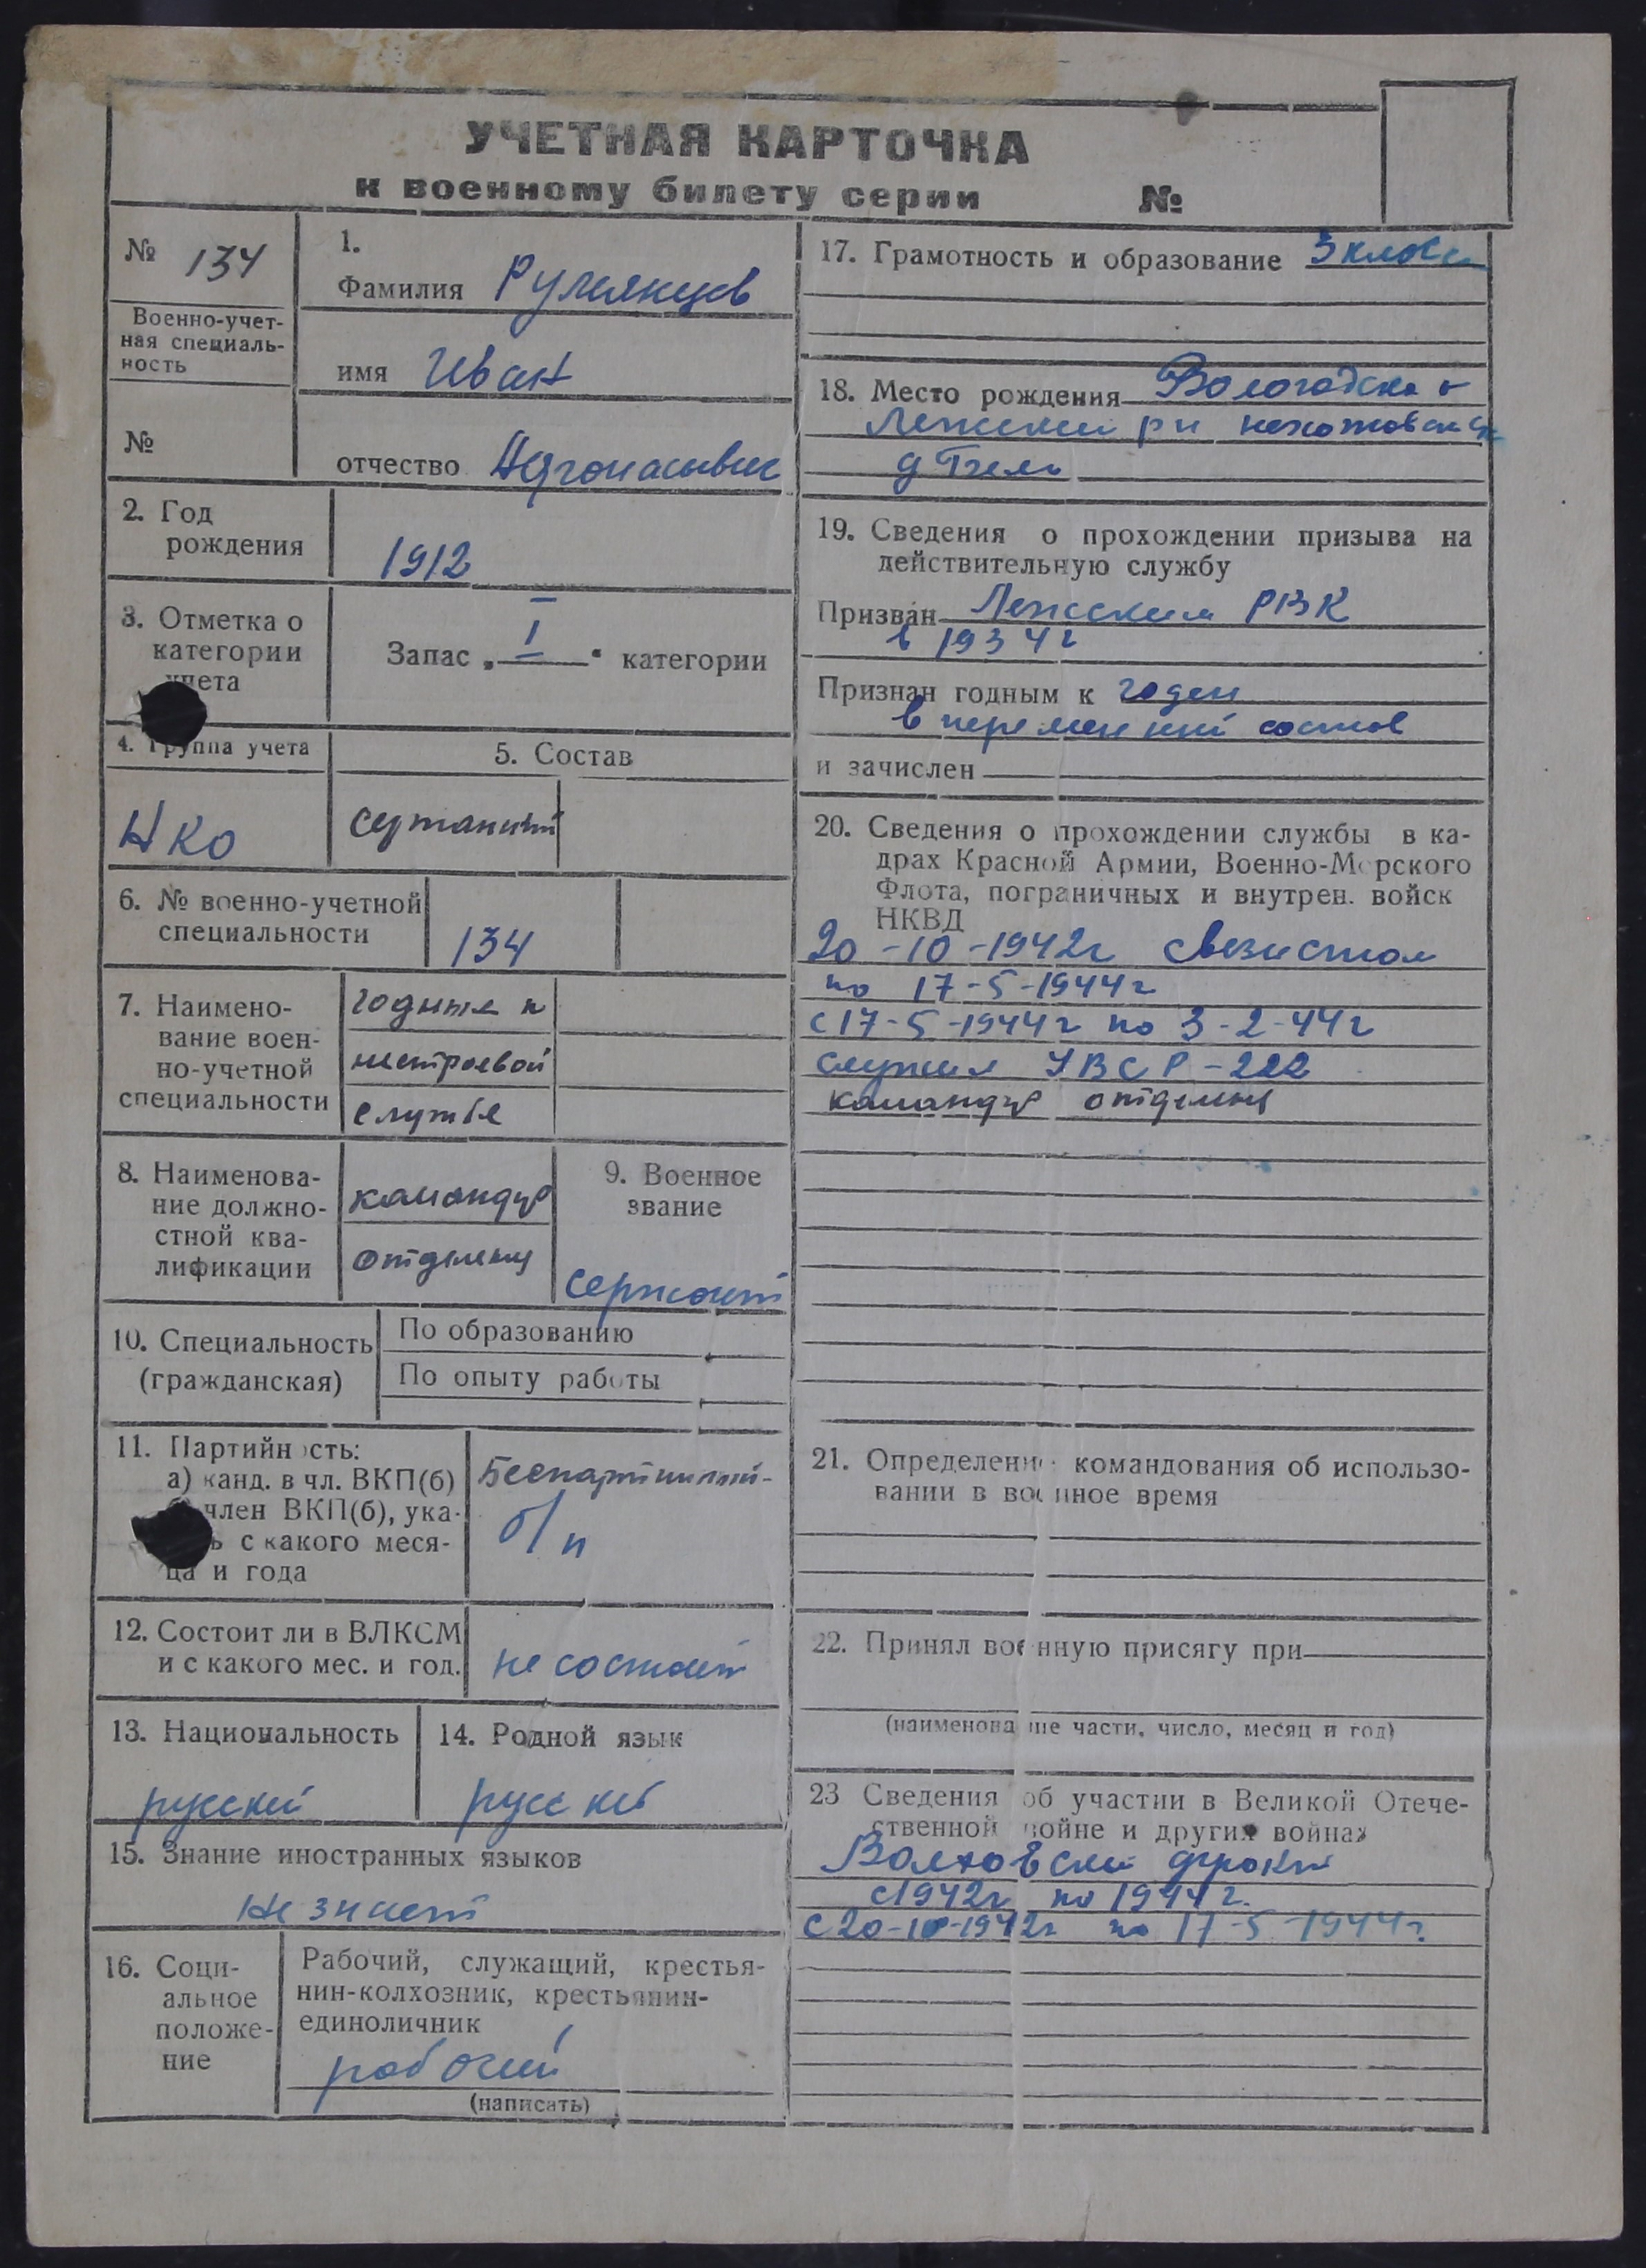 УЧЕТНАЯ КАРТОЧКА
к военному билету серии №
№ 134
Военно-учет-
ная специаль-
ность
№
1.
Фамилия Румянцев
имя Иван
отчество
2. Год
рождения
1912
3. Отметка о
категории
учета
Запас „ I “ категории
4. Группа учета
НКО
5. Состав
сержантский
6. № военно-учетной
специальности
134
7. Наимено-
вание воен-
но-учетной
специальности
годные к
нестроевой
службе
8. Наименова-
ние должно-
стной ква-
лификации
командир
отделения
9. Военное
звание
сержант
10. Специальность
(гражданская)
По образованию
По опыту работы
11. Партийность:
а) канд. в чл. ВКП(б)
член ВКП(б), ука-
с какого меся-
ца и года
Беспартийный-
б/п
12. Состоит ли в ВЛКСМ
и с какого мес. и год.
не состоит
13. Национальность
русский
14. Родной язык
русский
15. Знание иностранных языков
Не знает
16. Соци-
альное
положе-
ние
Рабочий, служащий, крестья-
нин-колхозник, крестьянин-
единоличник
рабочий
(написать)
17. Грамотность и образование 3 класса
18. Место рождения Вологодская
Лежский р-н
д
19. Сведения о прохождении призыва на
действительную службу
Призван Лежским РВК
в 1934 г
Признан годным к годен
в переменный состав
и зачислен
20. Сведения о прохождении службы в ка-
драх Красной Армии, Военно-Морского
Флота, пограничных и внутрен. войск
НКВД
20-10-1942г связистом
по 17-5-1944г
с 17-5-1944г по 3-2-44г
служил УВСР-222
командир отделения
21. Определение командования об использо-
вании в военное время
22. Принял военную присягу при
(наименование части, число, месяц и год)
23 Сведения об участии в Великой Отече-
ственной войне и других войнах
Волховский фронт
с 1942г по 1944 г.
с 20-10-1942г по 17-5-1944г.